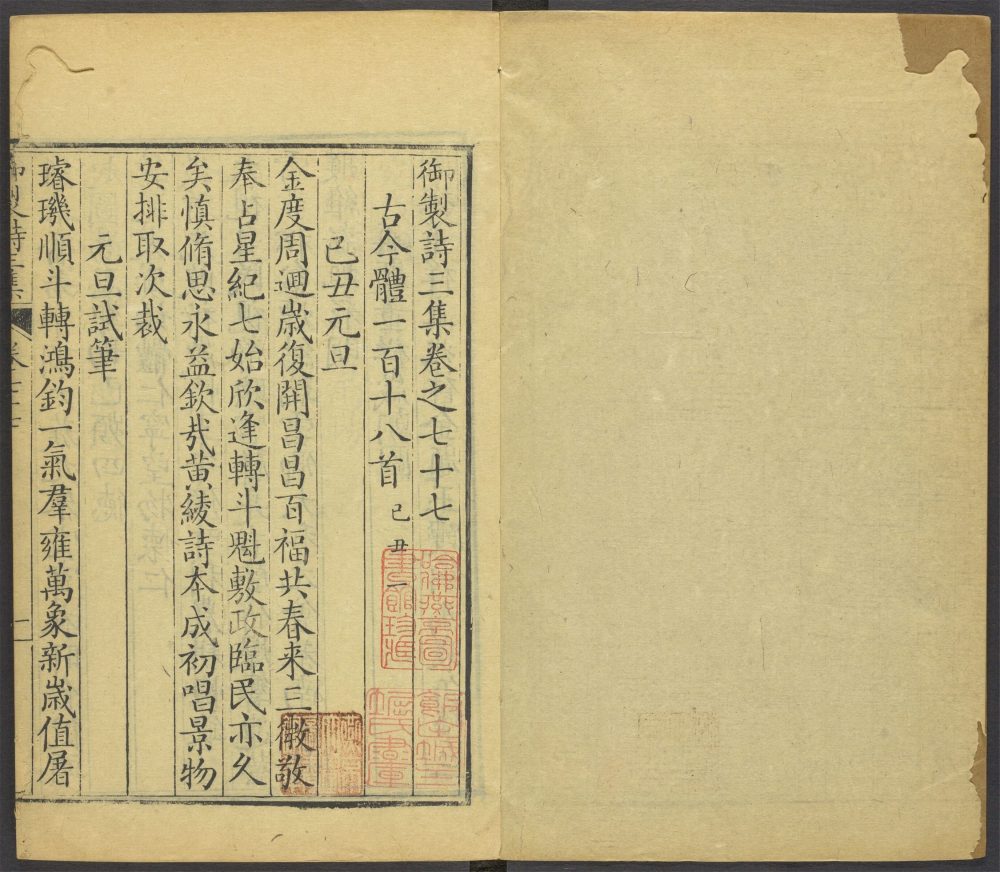 御製詩三集卷之七十七
古今體一百十八首 己丑一
己丑元旦
金度周迴歲復開昌昌百福共春来三微敬
奉占星紀七始欣逢轉斗魁敷政臨民亦久
矣慎脩思永益欽哉黄綾詩本成初唱景物
安排取次裁
元旦試筆
璿璣順斗轉鴻鈞一氣羣雍萬象新歲值屠
御製詩三集 卷七十七 一
哈佛燕京圖書館珍藏